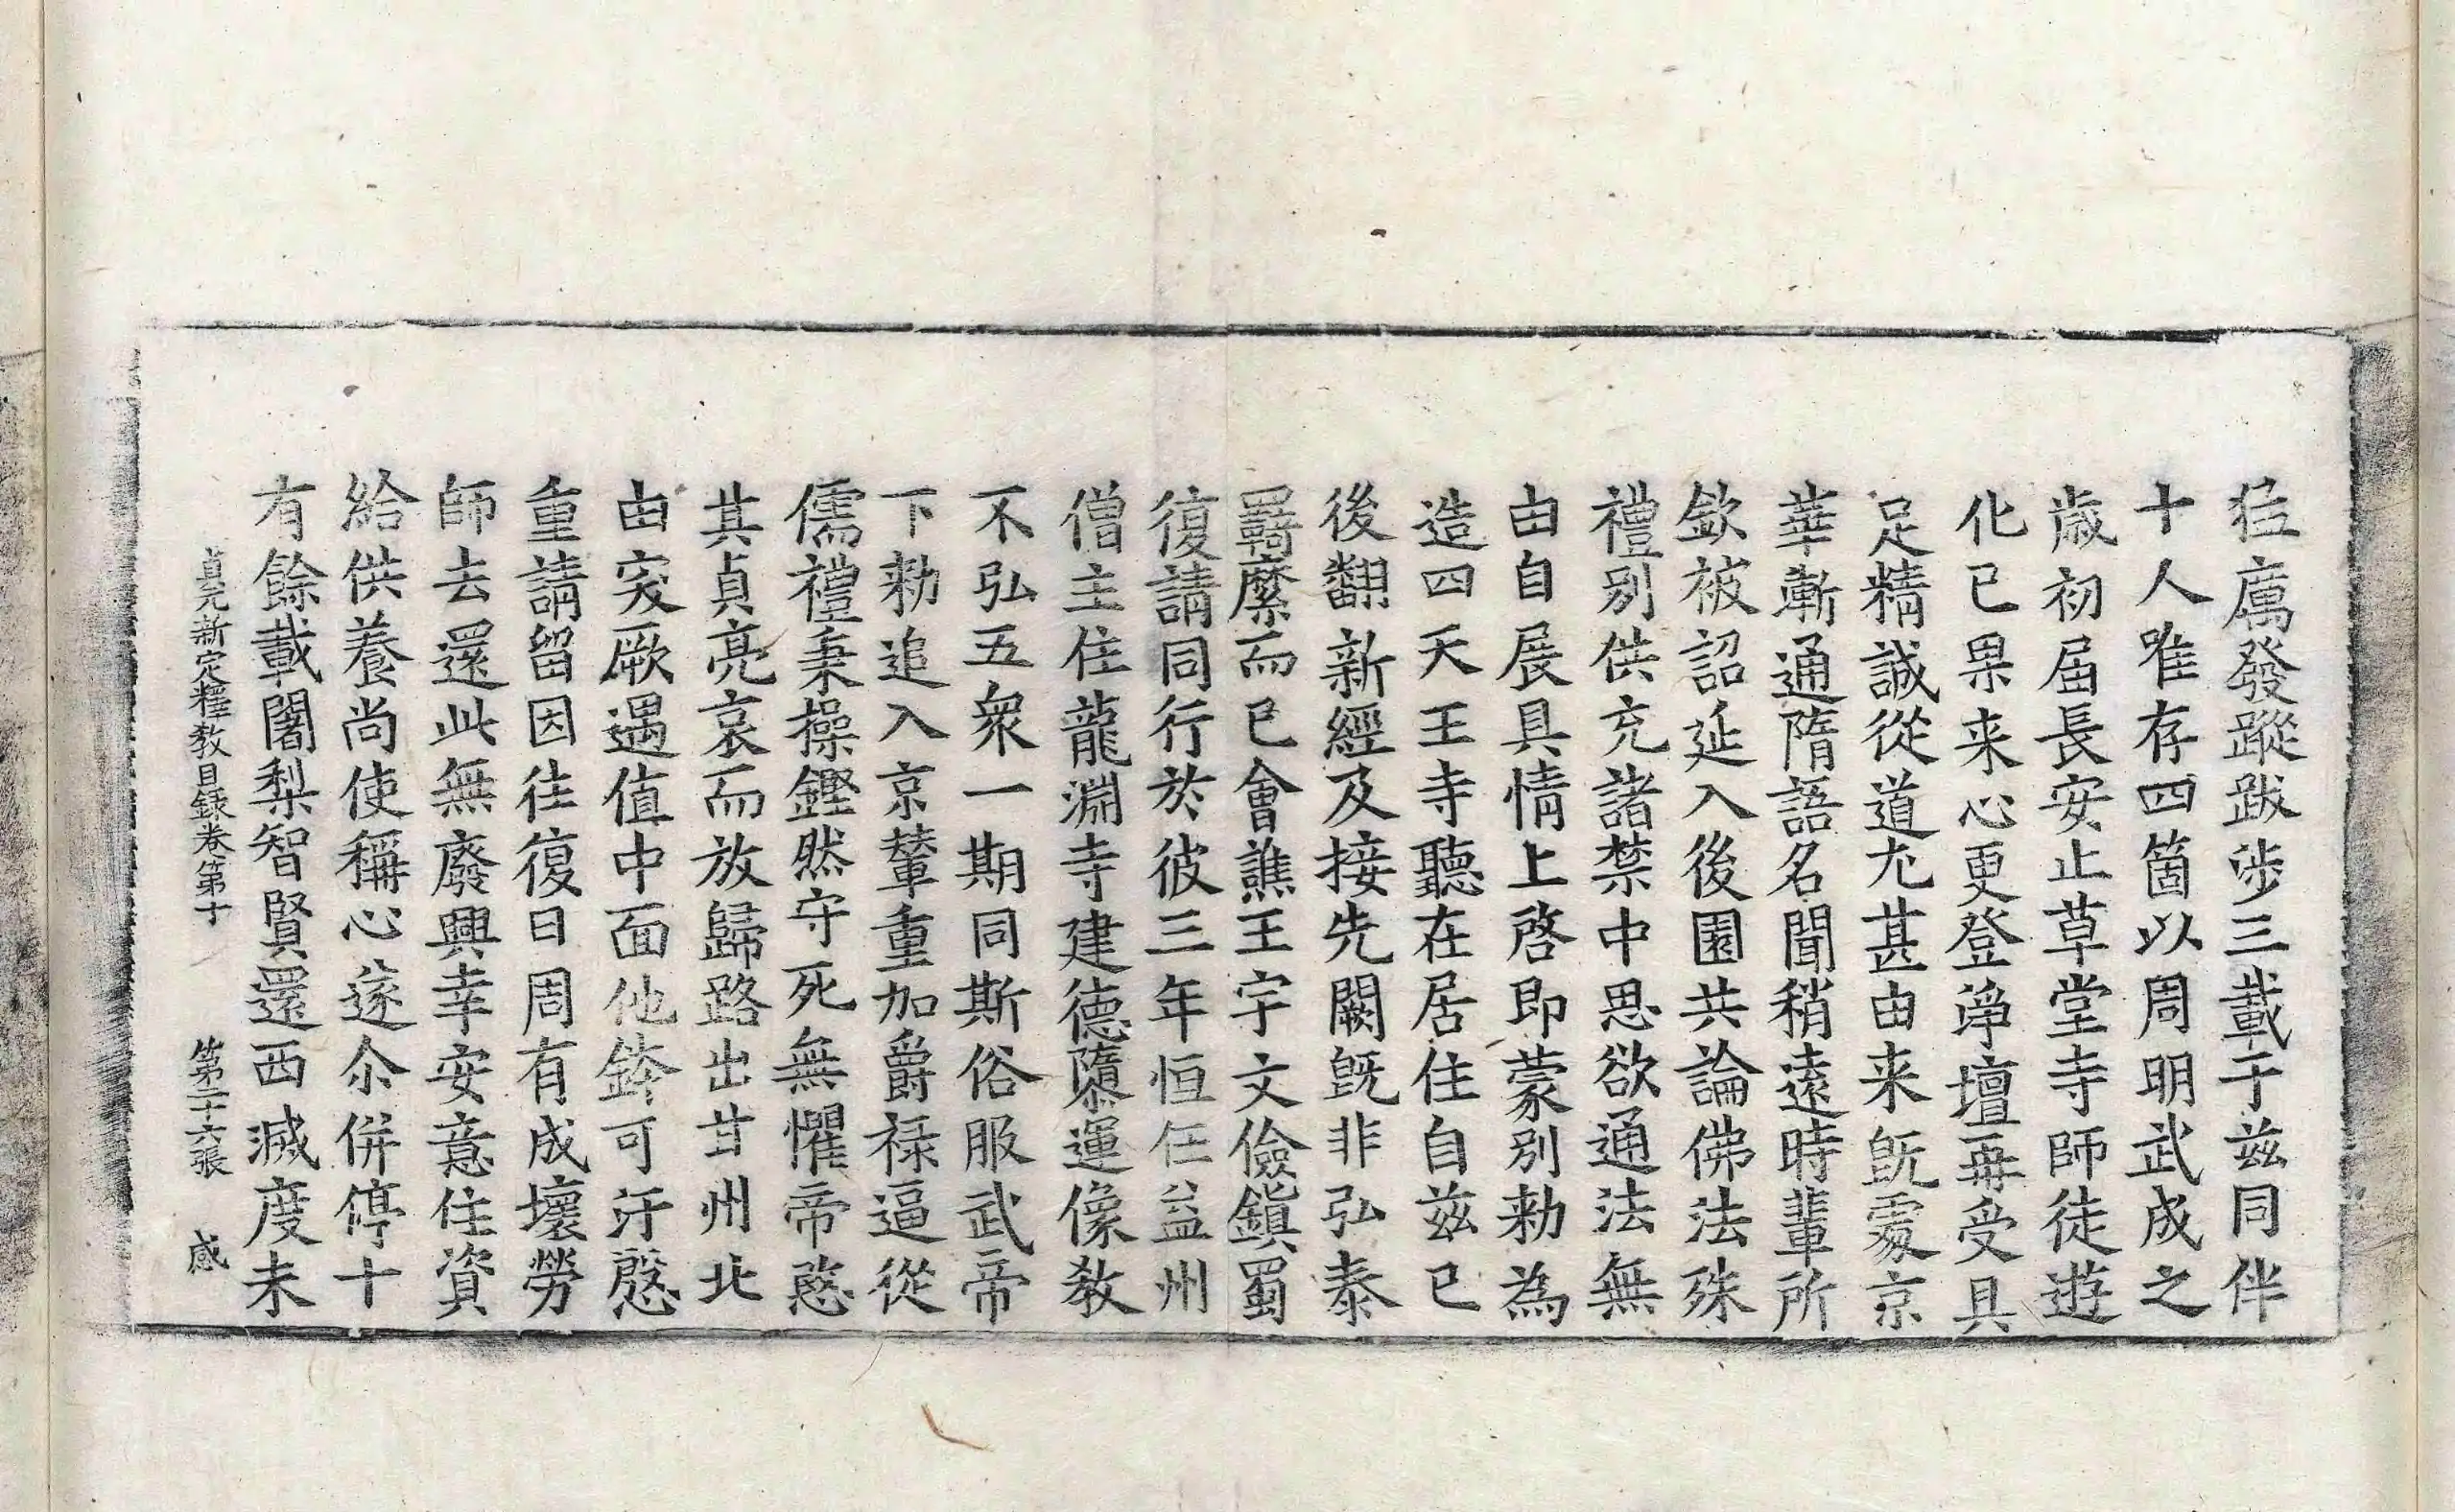 狂厲發蹤跋涉三載于茲同伴
十人唯存四箇以周明武成之
歲初届長安止草堂寺師徒遊
化已果来心更登淨壇再受具
足精誠從道尤甚由来旣處京
華漸通隋語名聞稍遠時輩所
欽被詔延入後園共論佛法殊
禮別供充諸禁中思欲通法無
由自展具情上啓即蒙別勑為
造四天王寺聽在居住自茲已
後翻新經及接先闕旣非弘泰
羈縻而已會譙王宇文儉鎭蜀
復請同行於彼三年恒任益州
僧主住龍淵寺建德隳運像教
不弘五衆一期同斯俗服武帝
下勑追入京輦重加爵祿逼從
儒禮秉操鏗然守死無懼帝愍
其貞亮哀而放歸路出甘州北
由突厥遇值中面他鉢可汗慇
重請留因往復曰周有成壞勞
師去還此無廢興幸安意住資
給供養尚使稱心遂尒併停十
有餘載闍梨智賢還西滅度未
貞元新定釋教目録卷第十 第二十六張 感